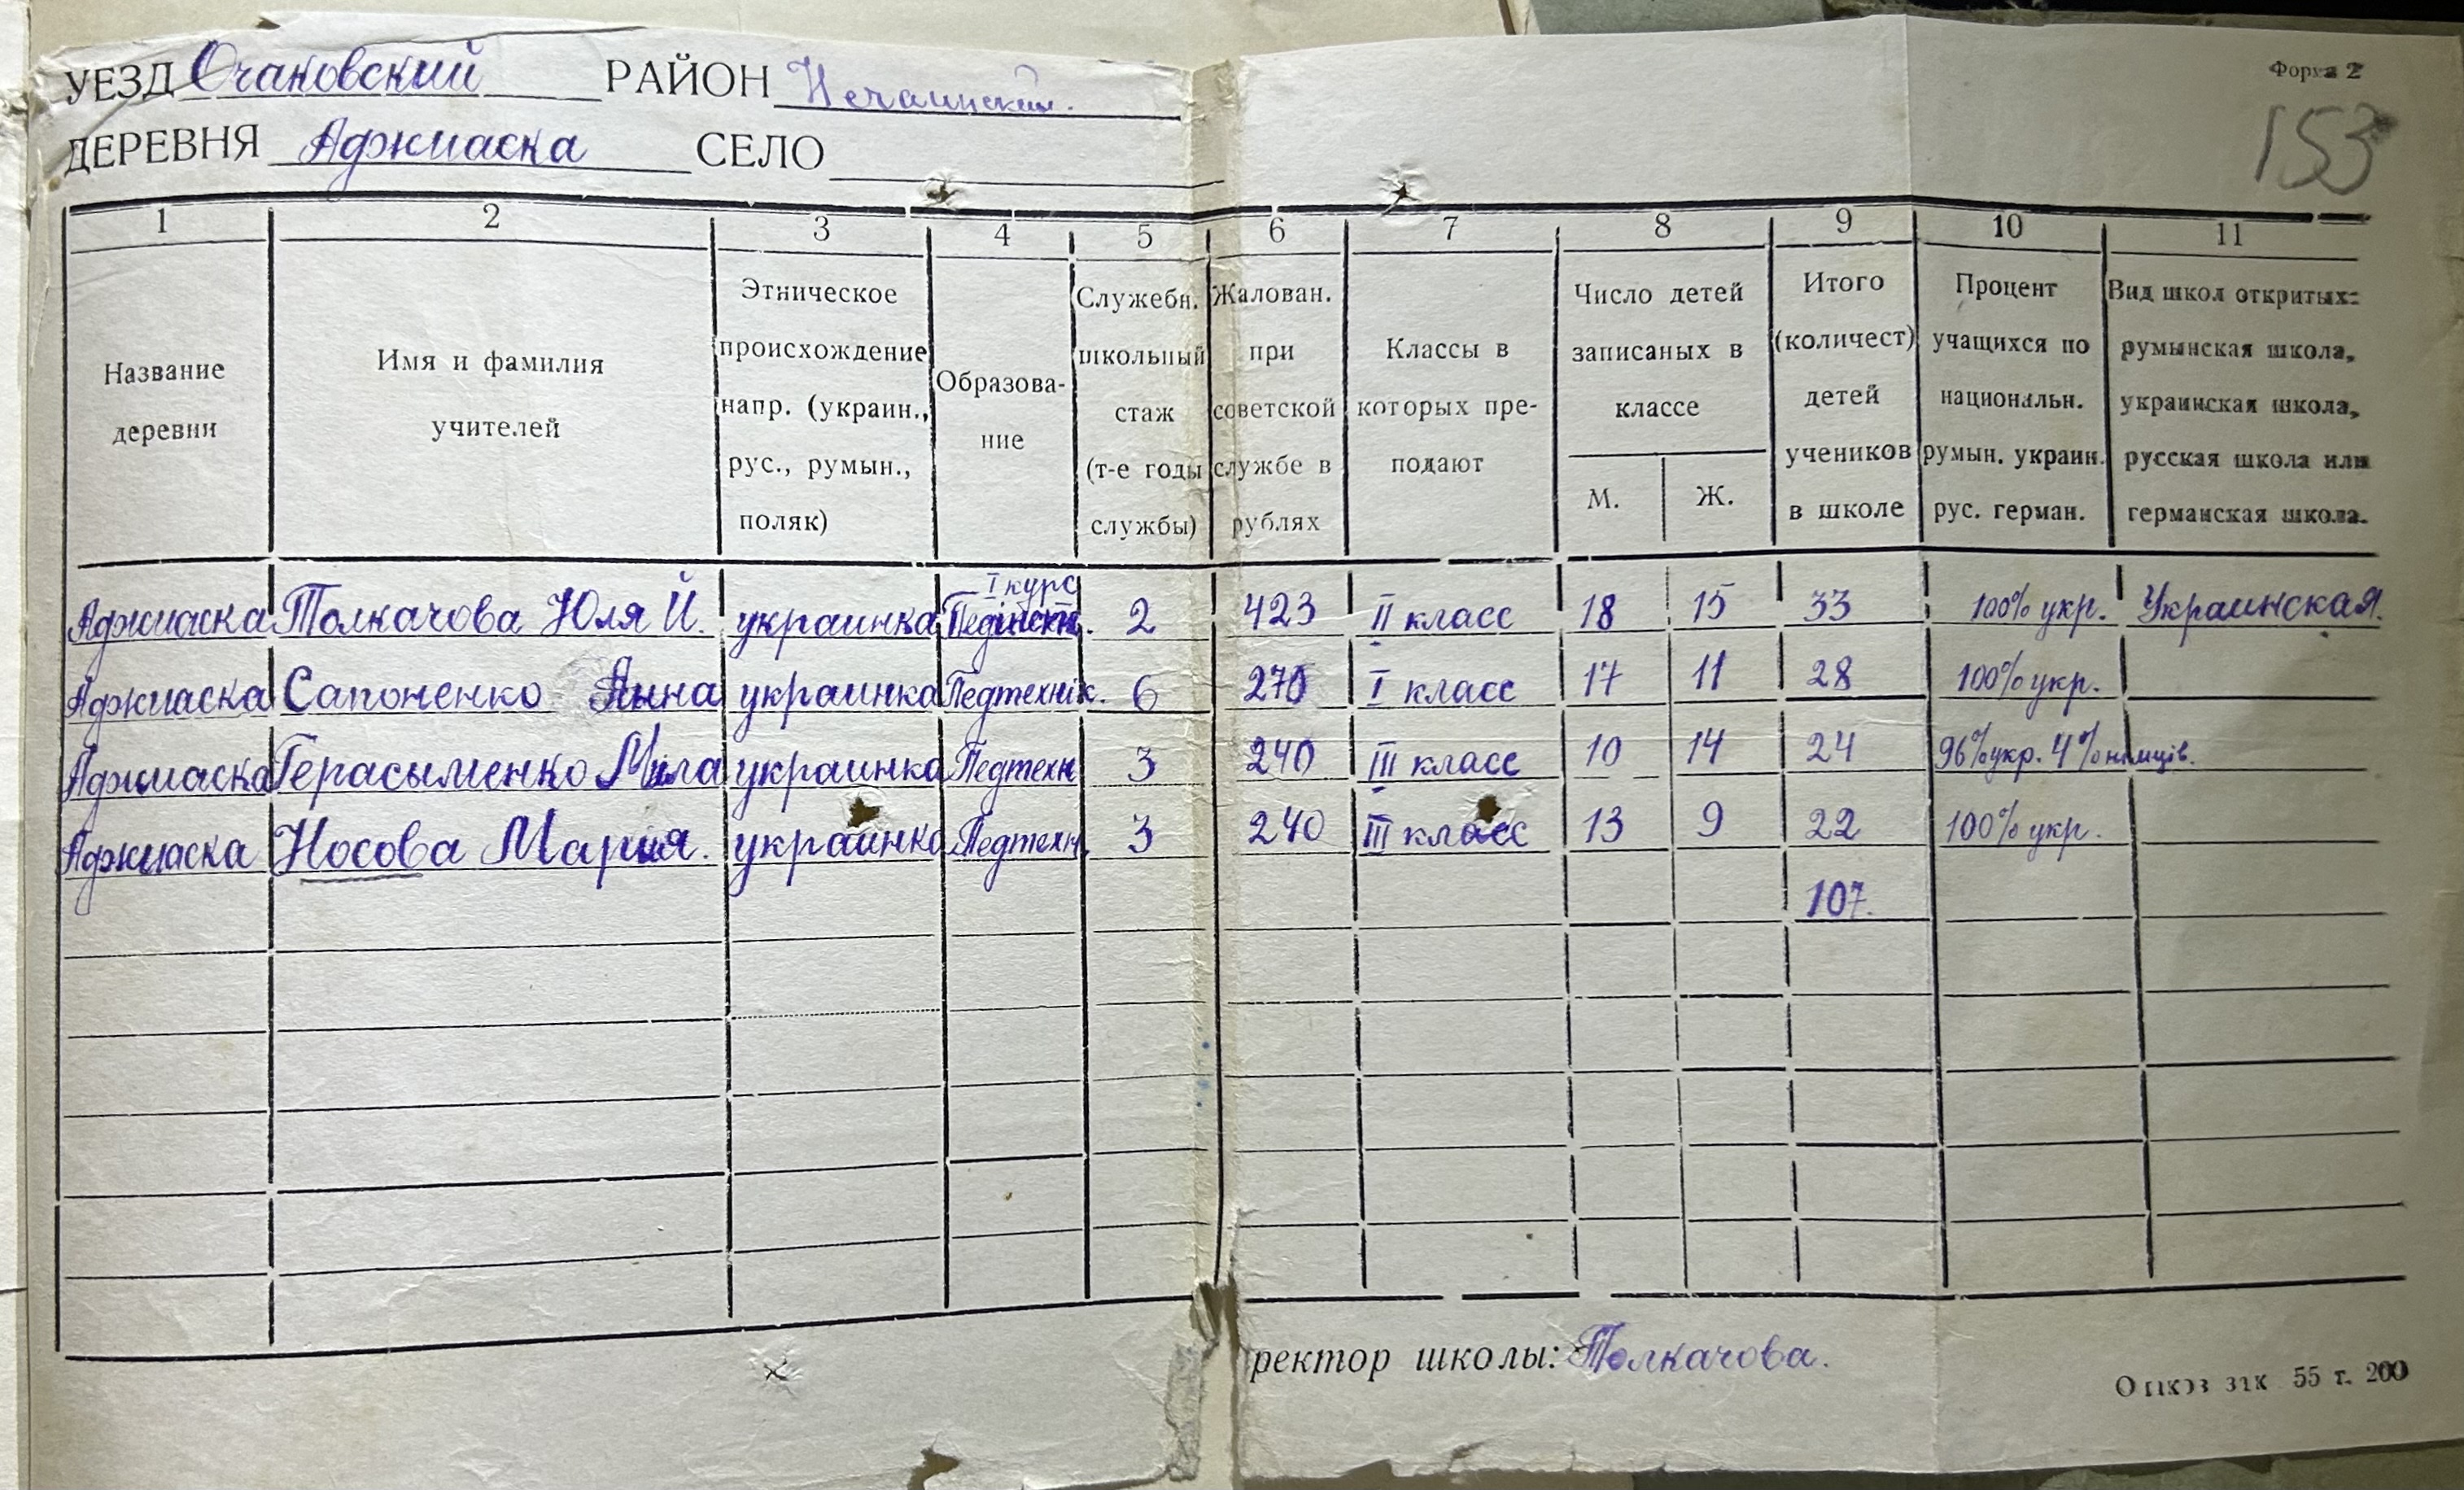 Форма 2
153
УЕЗД Очаковский РАЙОН Нечаинский.
ДЕРЕВНЯ Аджиаска СЕЛО
1 2 3 4 5 6 7 8 9 10 11
Название деревни
Имя и фамилия учителей
Этническое происхождение напр. (украин., рус., румын., поляк)
Образова- ние
Служебн. школьный стаж (т-е годы службы)
Жалован. при советской службе в рублях
Классы в которых пре- подают
Число детей записаных в классе
М. Ж.
Итого (количест) детей учеников в школе
Процент учащихся по национальн. румын. украин. рус. герман.
Вид школ откритых: румынская школа, украинская школа, русская школа или германская школа.
Аджиаска Толкачова Юля И. украинка I курс Педінстит. 2 423 II класс 18 15 33 100% укр. Украинская.
Аджиаска Сапоненко Анна украинка Педтехнік. 6 270 I класс 17 11 28 100% укр.
Аджиаска Герасыменко Мила украинка Педтехн 3 240 III класс 10 14 24 96% укр. 4% німців.
Аджиаска Носова Мария. украинка Педтехн. 3 240 III класс 13 9 22 100% укр.
107.
ректор школы: Толкачова.
55 т. 200